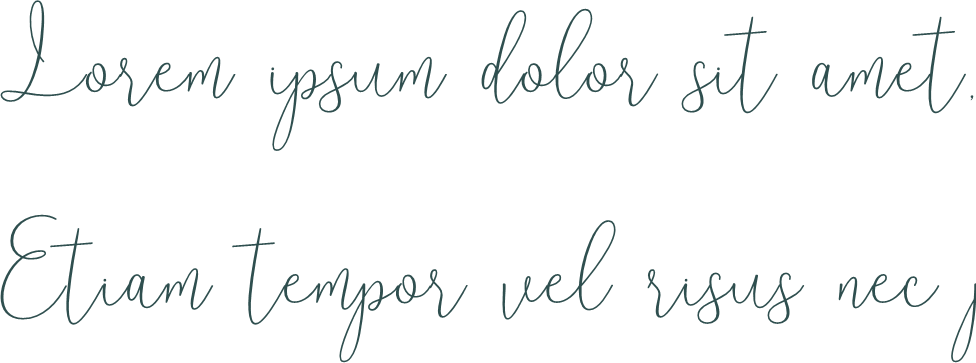 Lorem ipsum dolor sit amet,
Etiam tempor vel risus nec